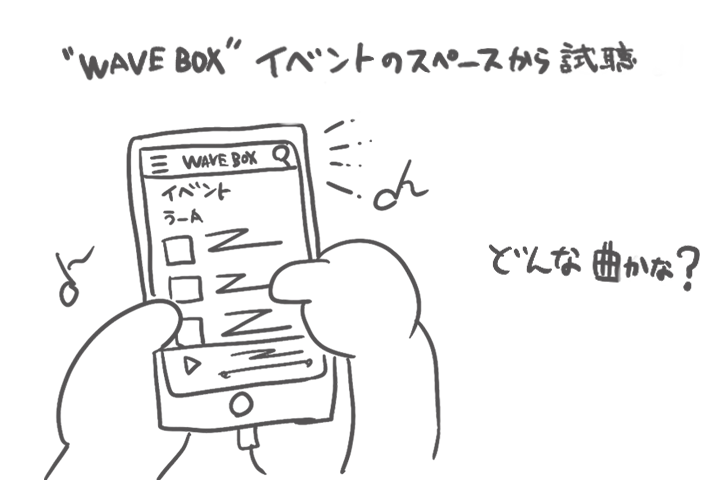 "WAVE BOX" イベントのスペースから試聴
WAVE BOX
イベント
うーA
どんな曲かな?